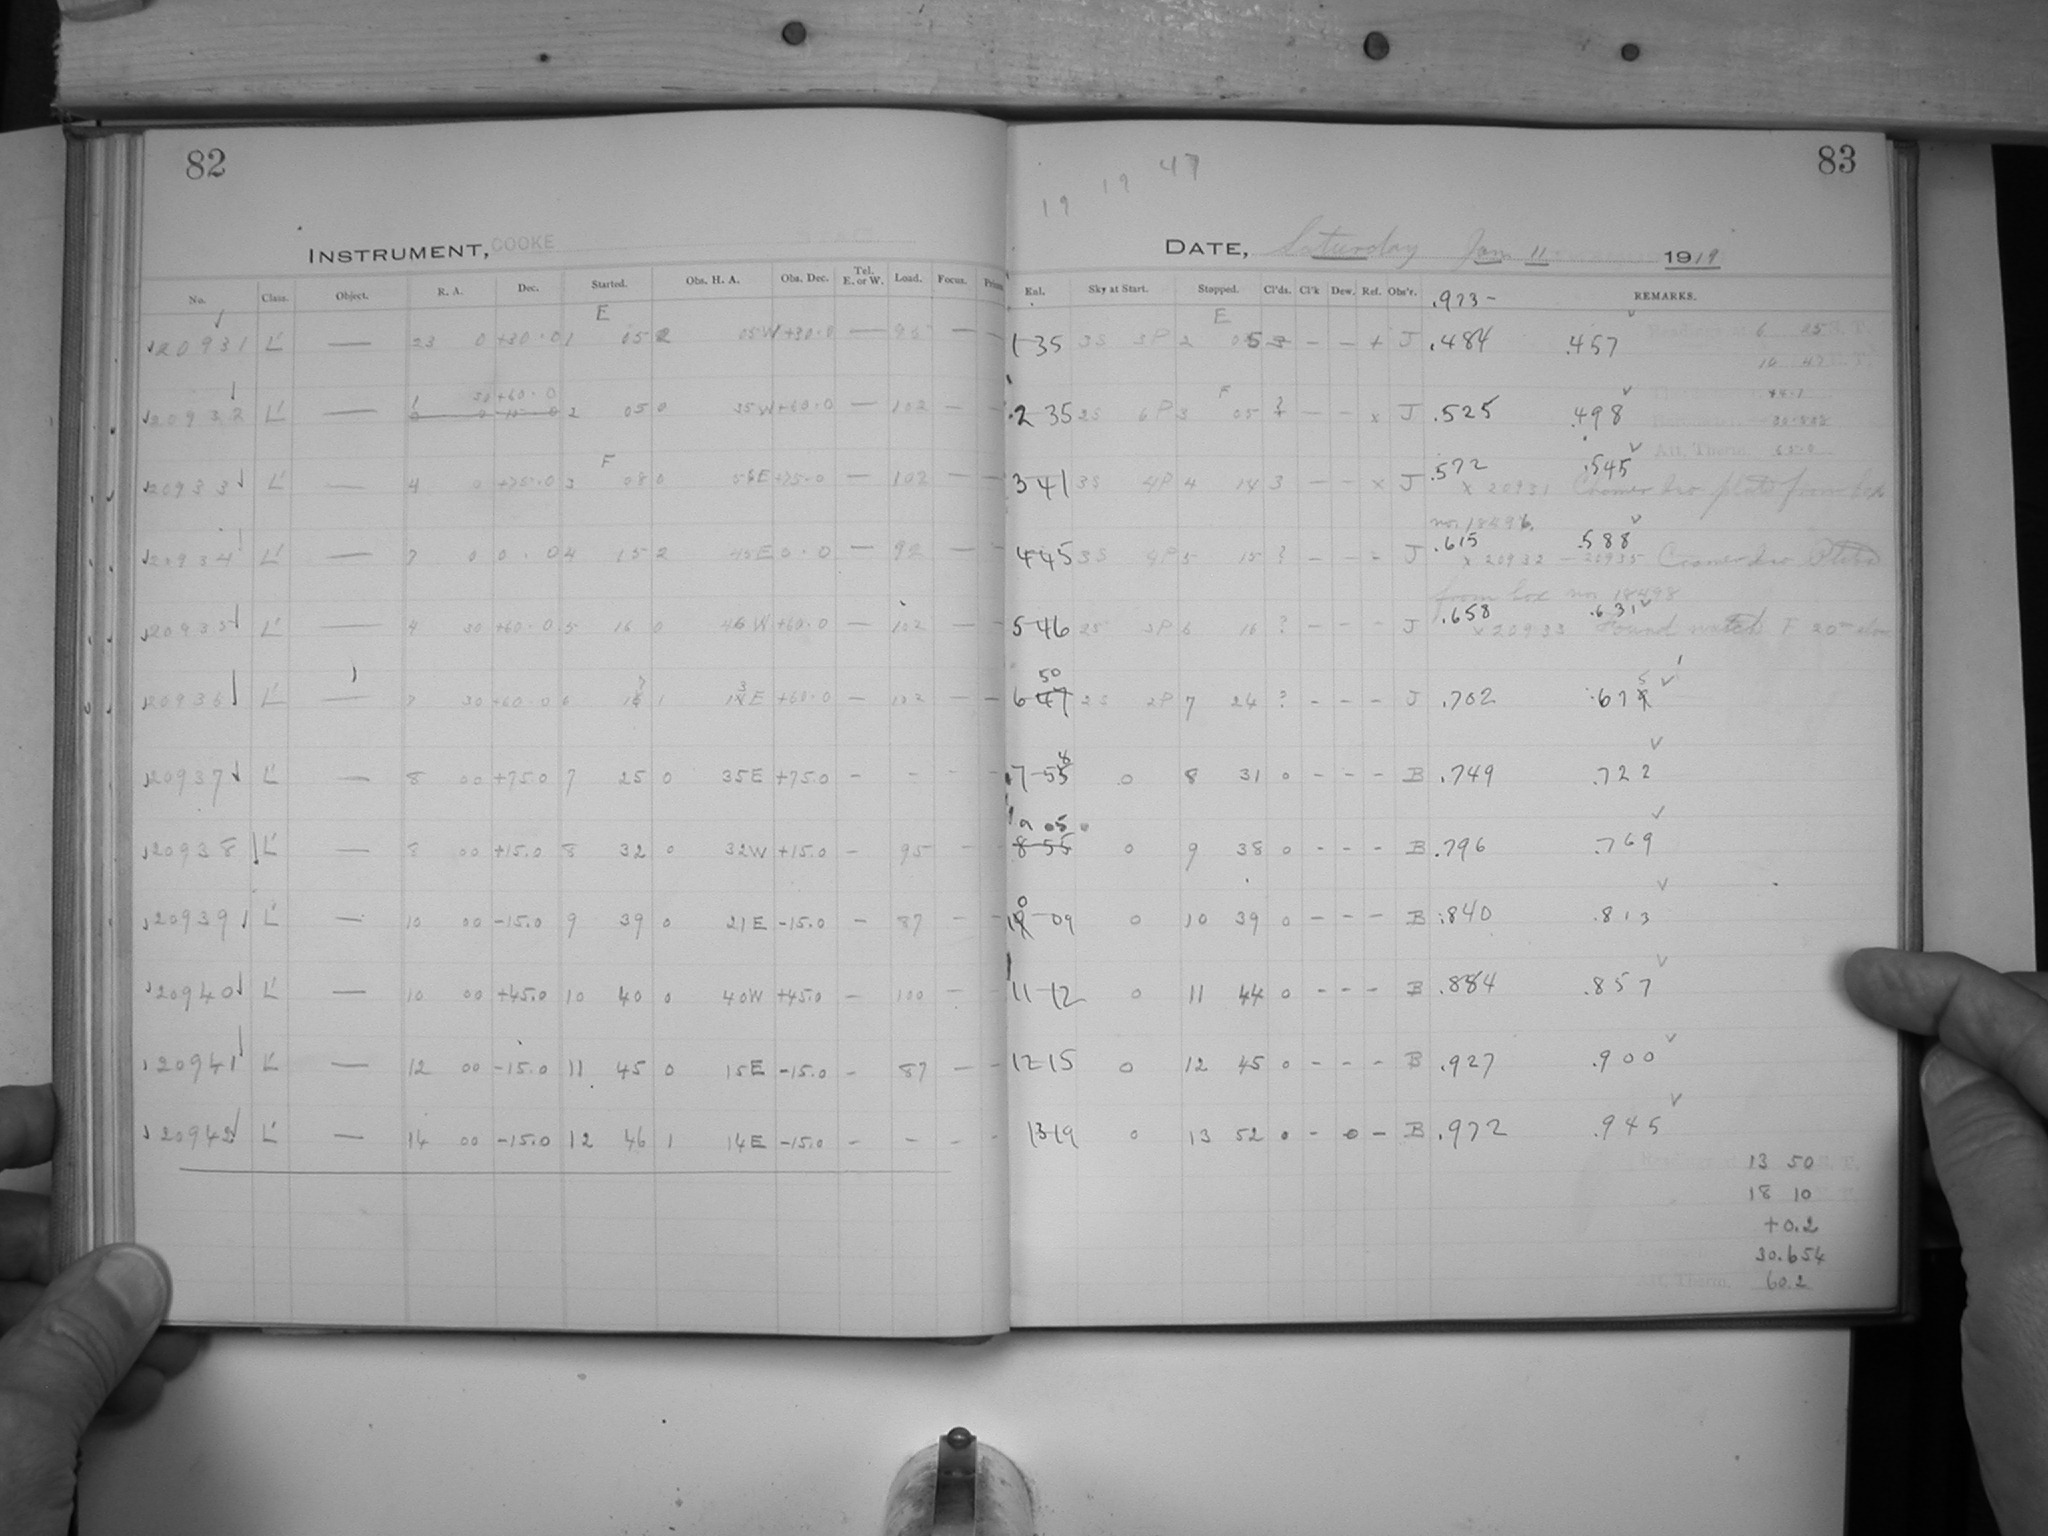 82
INSTRUMENT, COOKE
No. Class. Object. R. A. Dec. Started. Obs. H. A. Obs. Dec. Tel. E. or W. Load. Focus.
E
20931 L' — 23 0 +30.0 1 05 2 05W +30.0 — 95 — —
1 30 +60.0
20932 L' — 2 05 0 35W +60.0 — 102 — —
F
20933 L' — 4 0 +75.0 3 08 0 56E +75.0 — 102 — —
20934 L' — 7 0 0.0 4 15 2 45E 0.0 — 92 — —
20935 L' — 4 30 +60.0 5 16 0 46W +60.0 — 102 — —
20936 L' — 7 30 +60.0 6 17 1 13E +60.0 — 102 — —
20937 L' — 8 00 +75.0 7 25 0 35E +75.0 - - - -
20938 L' — 8 00 +15.0 8 32 0 32W +15.0 - 95 - -
20939 L' — 10 00 -15.0 9 39 0 21E -15.0 - 87 - -
20940 L' — 10 00 +45.0 10 40 0 40W +45.0 - 100 - -
20941 L' — 12 00 -15.0 11 45 0 15E -15.0 - 87 - -
20942 L' — 14 00 -15.0 12 46 1 14E -15.0 - - - -
83
19 19 47
DATE, Saturday Jan 11 1919
Exl. Sky at Start. Stopped. Cl'ds. Cl'k Dew. Ref. Obs'r. .973- REMARKS.
E
1-35 3S 3P 2 05 3 - - + J .484 .457
F
2 35 2S 6P 3 05 ? - - x J .525 .498
3 41 3S 4P 4 14 3 - - x J .572 .545
x 20931 Cramer Iso plate from box
no. 18496.
4 45 3S 4P 5 15 ? - - - J .615 .588
x 20932 - 20935 Cramer Iso Plates
from box no. 18498
5-46 2S 3P 6 16 ? - - J .658 .631
x 20933 Found watch F 20m slow
50
6 47 2S 2P 7 24 ? - - - J .702 .675
7-54 0 8 31 0 - - - B .749 .722
9 05
8-55 0 9 38 0 - - - B .796 .769
10-09 0 10 39 0 - - - B .840 .813
11-12 0 11 44 0 - - - B .884 .857
12-15 0 12 45 0 - - - B .927 .900
13-19 0 13 52 0 - 0 - B .972 .945
13 50
18 10
+0.2
30.654
Att. Therm. 60.2